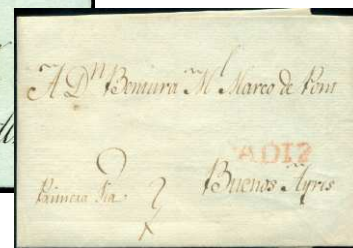 A Dⁿ Bentura Mˡ Marco de Pont
ADIZ
Buenos Ayris
Primera Via